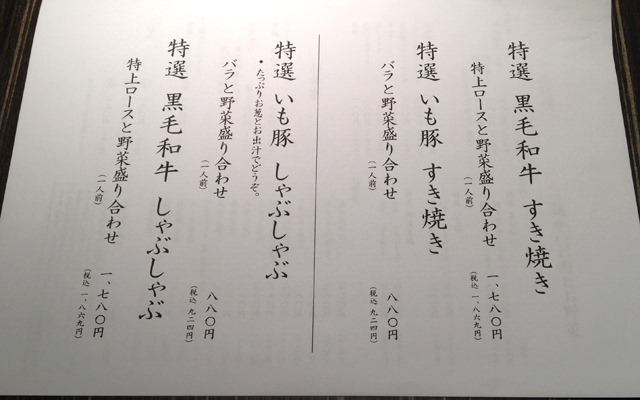 特選 黒毛和牛 すき焼き
特上ロースと野菜盛り合わせ
(一人前)
一、七八〇円
(税込 一、八六九円)
特選 いも豚 すき焼き
バラと野菜盛り合わせ
(一人前)
八八〇円
(税込 九二四円)
特選 いも豚 しゃぶしゃぶ
・たっぷりお葱とお出汁でどうぞ。
バラと野菜盛り合わせ
(一人前)
八八〇円
(税込 九二四円)
特選 黒毛和牛 しゃぶしゃぶ
特上ロースと野菜盛り合わせ
(一人前)
一、七八〇円
(税込 一、八六九円)